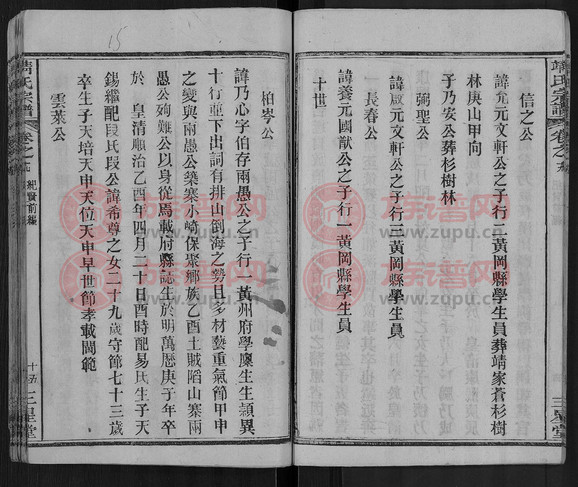 信之公
諱允元文軒公之子行二黃岡縣學生員葬靖家蒼杉樹
林庚山甲向
子乃安公葬杉樹林
弼聖公
諱啟元文軒公之子行三黃岡縣學生員
長春公
諱養元國猷公之子行一黃岡縣學生員
十世
柏岑公
諱乃心字伯存兩愚公之子行一黃州府學廩生生頴異
十行並下出詞有排山倒海之勢且多材藝重氣節甲申
之變與兩愚公築寨小崎保聚鄉族乙酉土賊陷山寨兩
愚公殉難公以身從焉載府縣誌生於明萬曆庚子年卒
於 皇清順治乙酉年四月二十日酉時配易氏生子天
錫繼配段氏段公諱希尊之女二十九歲守節七十三歲
卒生子天培天申天位天申早世節孝載閫範
雲葉公
靖氏宗譜
卷之九
紀賢前編
十五
三星堂
靖氏宗譜
三星堂
15
族譜网
www.zupu.cn
族譜网
www.zupu.cn